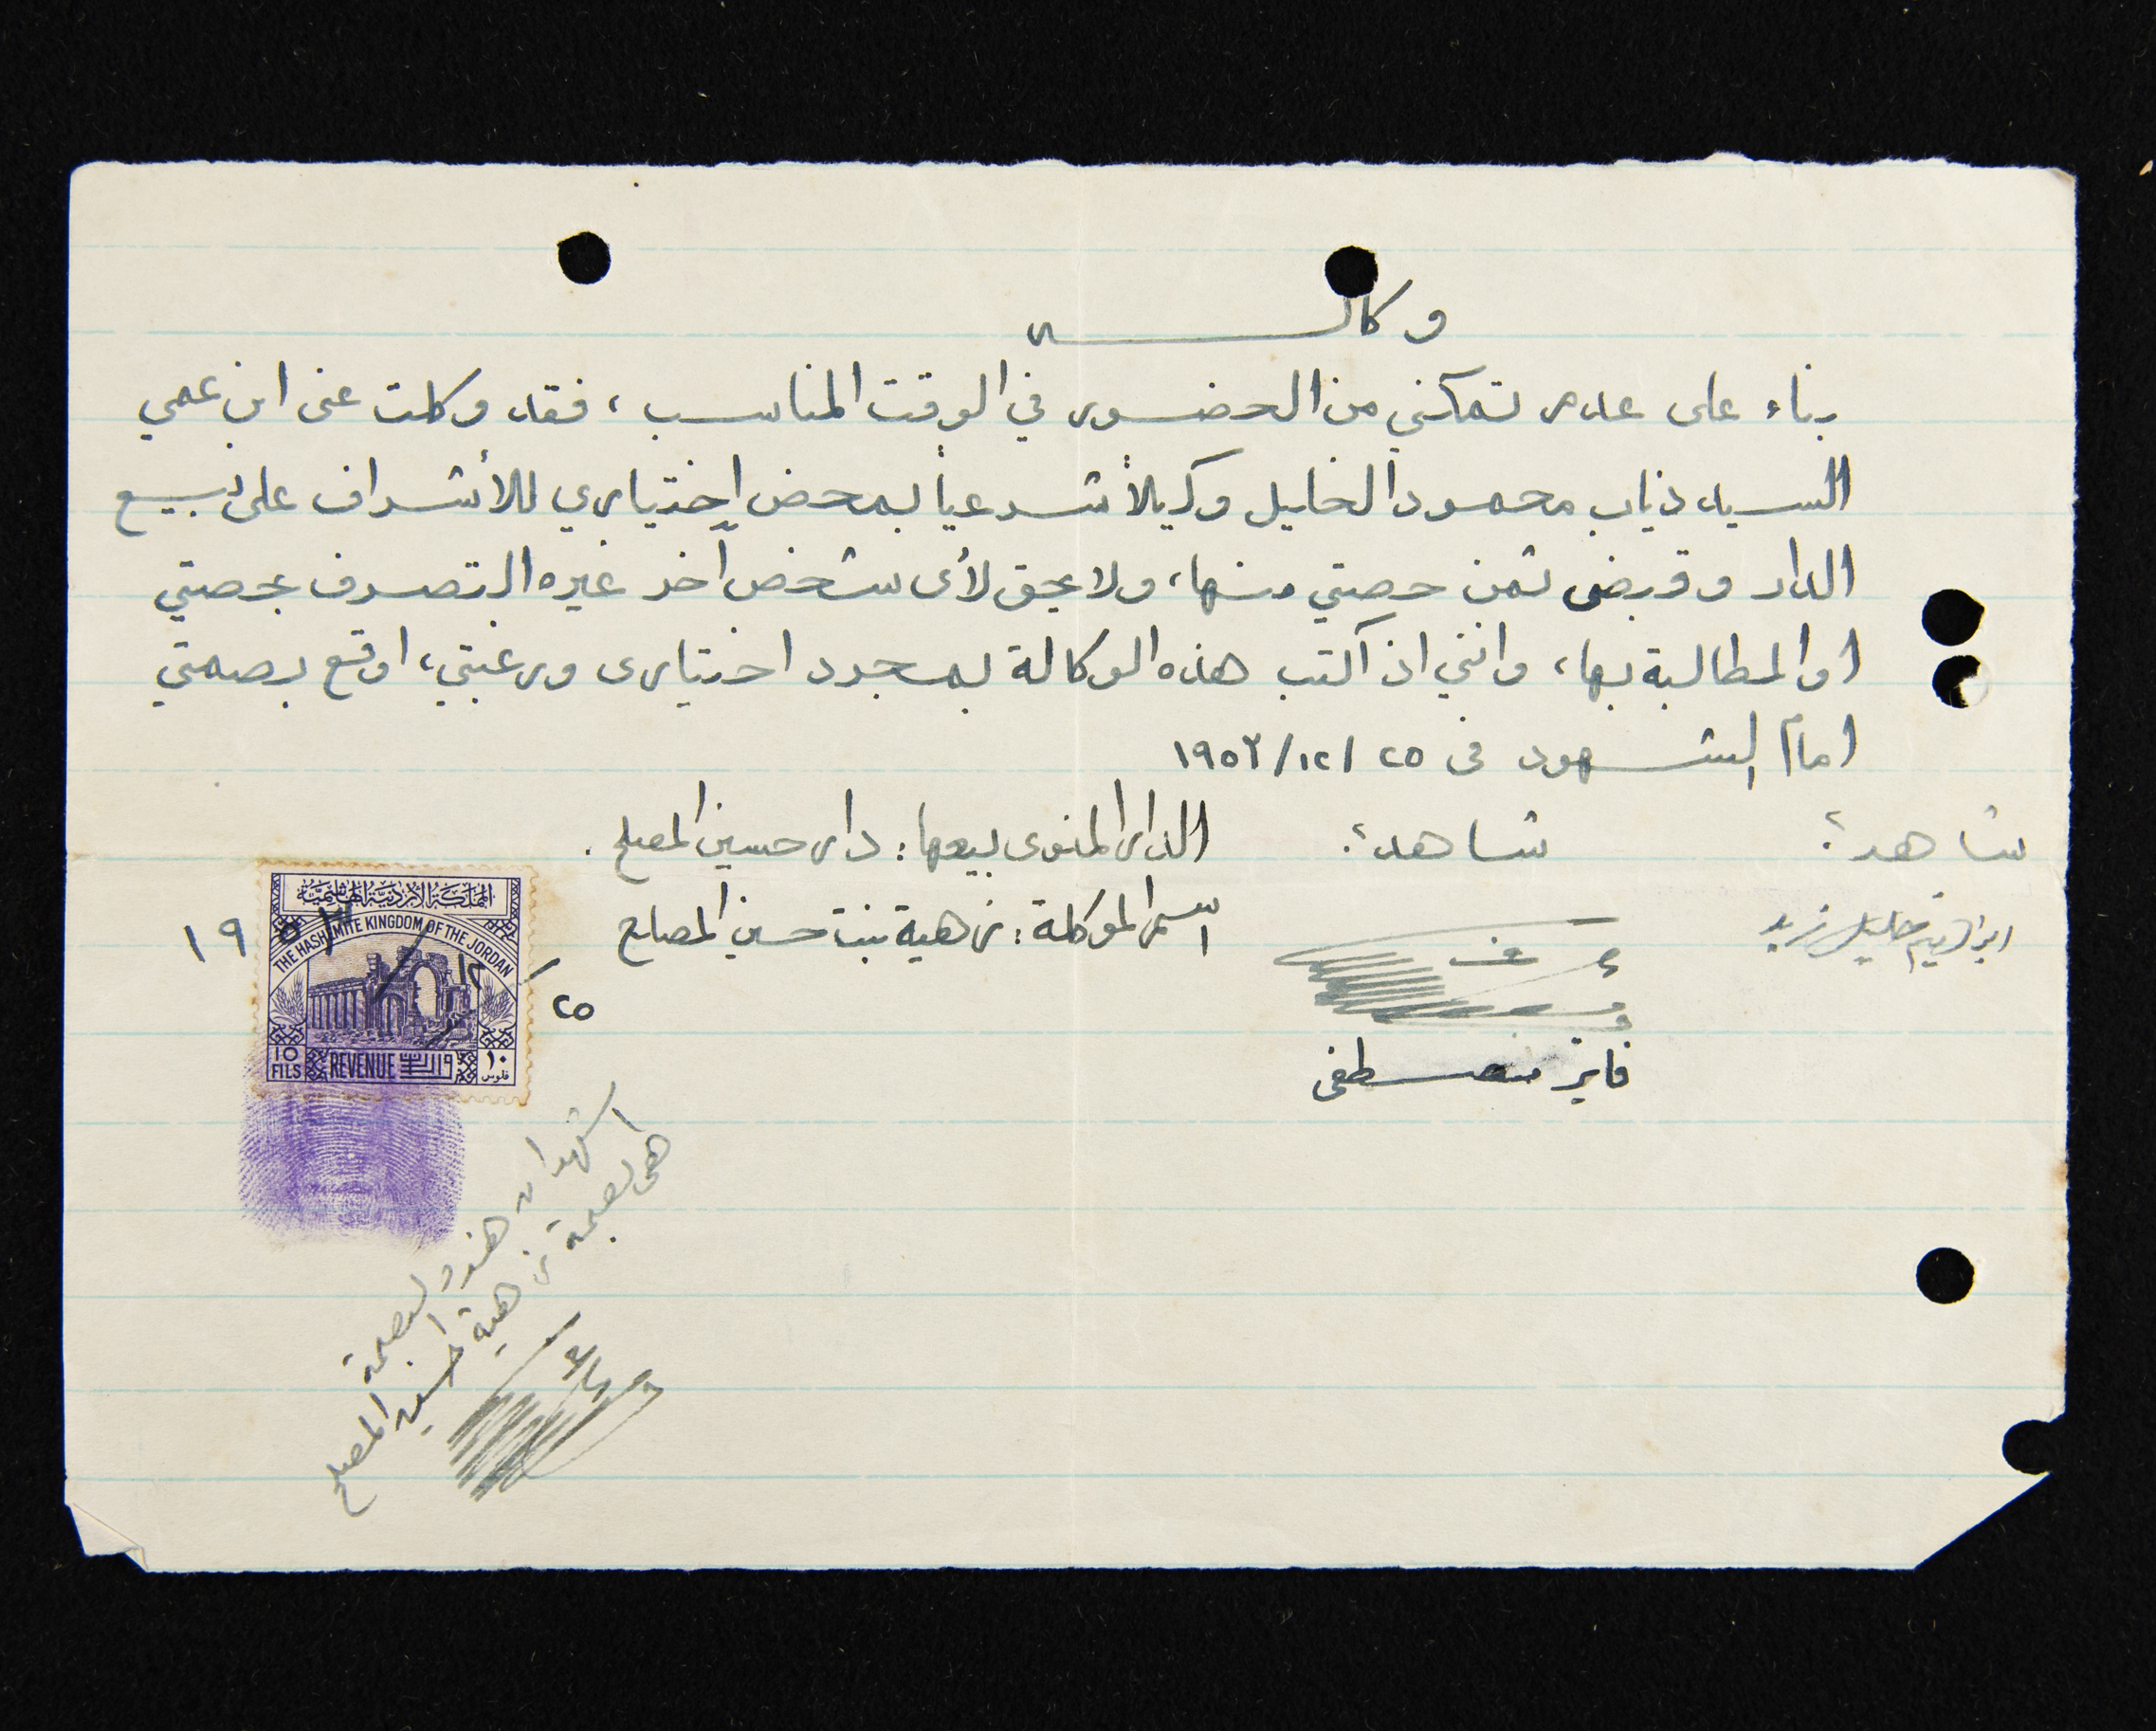 وكالـــــه
بناء على عدم تمكني من الحضور في الوقت المناسب، فقد وكلت عنى ابن عمي
السيد ذياب محمود الخليل وكيلاً شرعياً بمحض إختياري للأشراف على بيع
الدار وقبض ثمن حصتي منها، ولا يحق لأى شخص آخر غيره التصرف بحصتي
او المطالبة بها، وانني اذ اكتب هذه الوكالة بمجرد اختيارى ورغبتي، اوقع بصمتي
امام الشهود فى ٢٥/١٢/١٩٥٣
شاهد؛ شاهد؛ الدار المنوى بيعها: دار حسين المصلح.
ابراهيم خليل زيد
فايز مصطفى
اسم الموكلة: زهية بنت حسين المصلح
المملكة الأردنية الهاشمية
THE HASHEMITE KINGDOM OF THE JORDAN
10 FILS REVENUE ١٠ فلوس
٢٥/١٢/١٩٥٣
اشهد ان هذه البصمة
هى بصمة زهية حسين المصلح